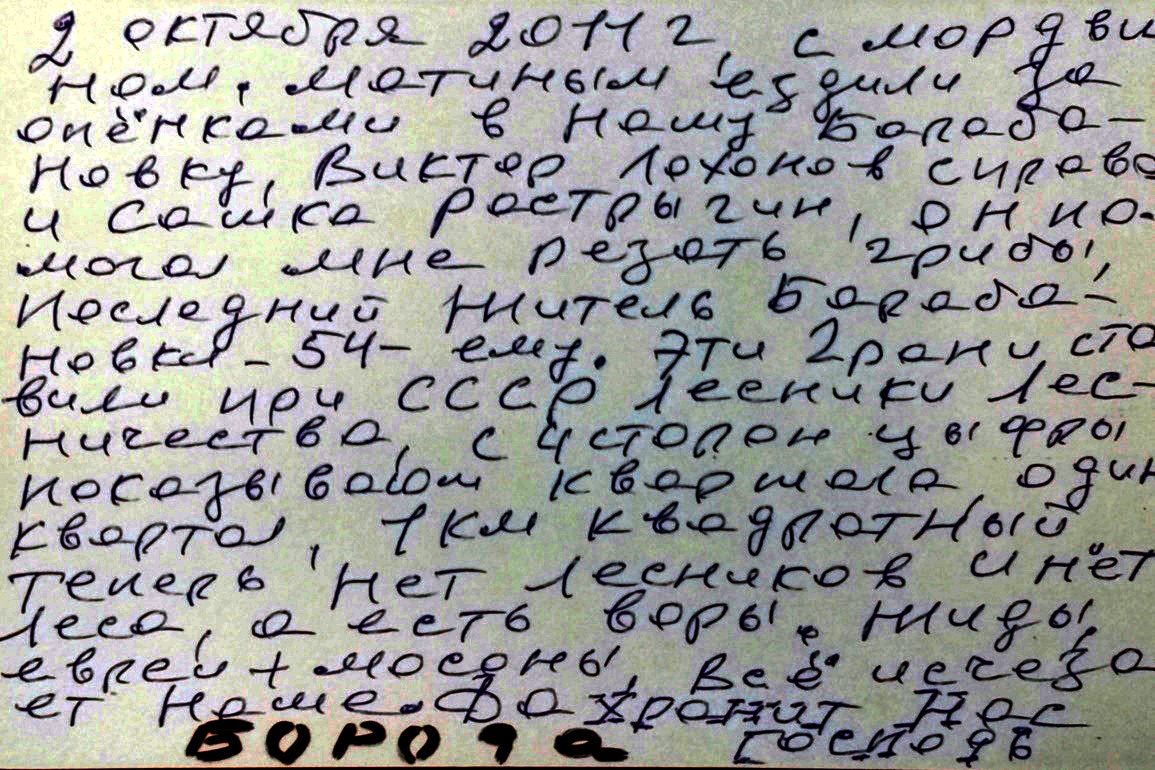 2 октября 2011 г, с мордви
ном. мотиным ездили за
опёнками в нашу Бараба-
новку, Виктор Лохонов справа
и Сашка Растрыгин, он по-
могал мне резать грибы,
последний житель Бараба-
новки - 54 - ему. Эти 2 рани ста
вили при СССР лесники лес-
ничества, с 4 сторон цыфры
показывают квартала, один
квартал, 1 км квадратный
теперь нет лесников и нет
леса, а есть воры, жиды,
евреи + масоны, всё исчеза
ет наше. Да хранит Нас
БОРОДА Господь